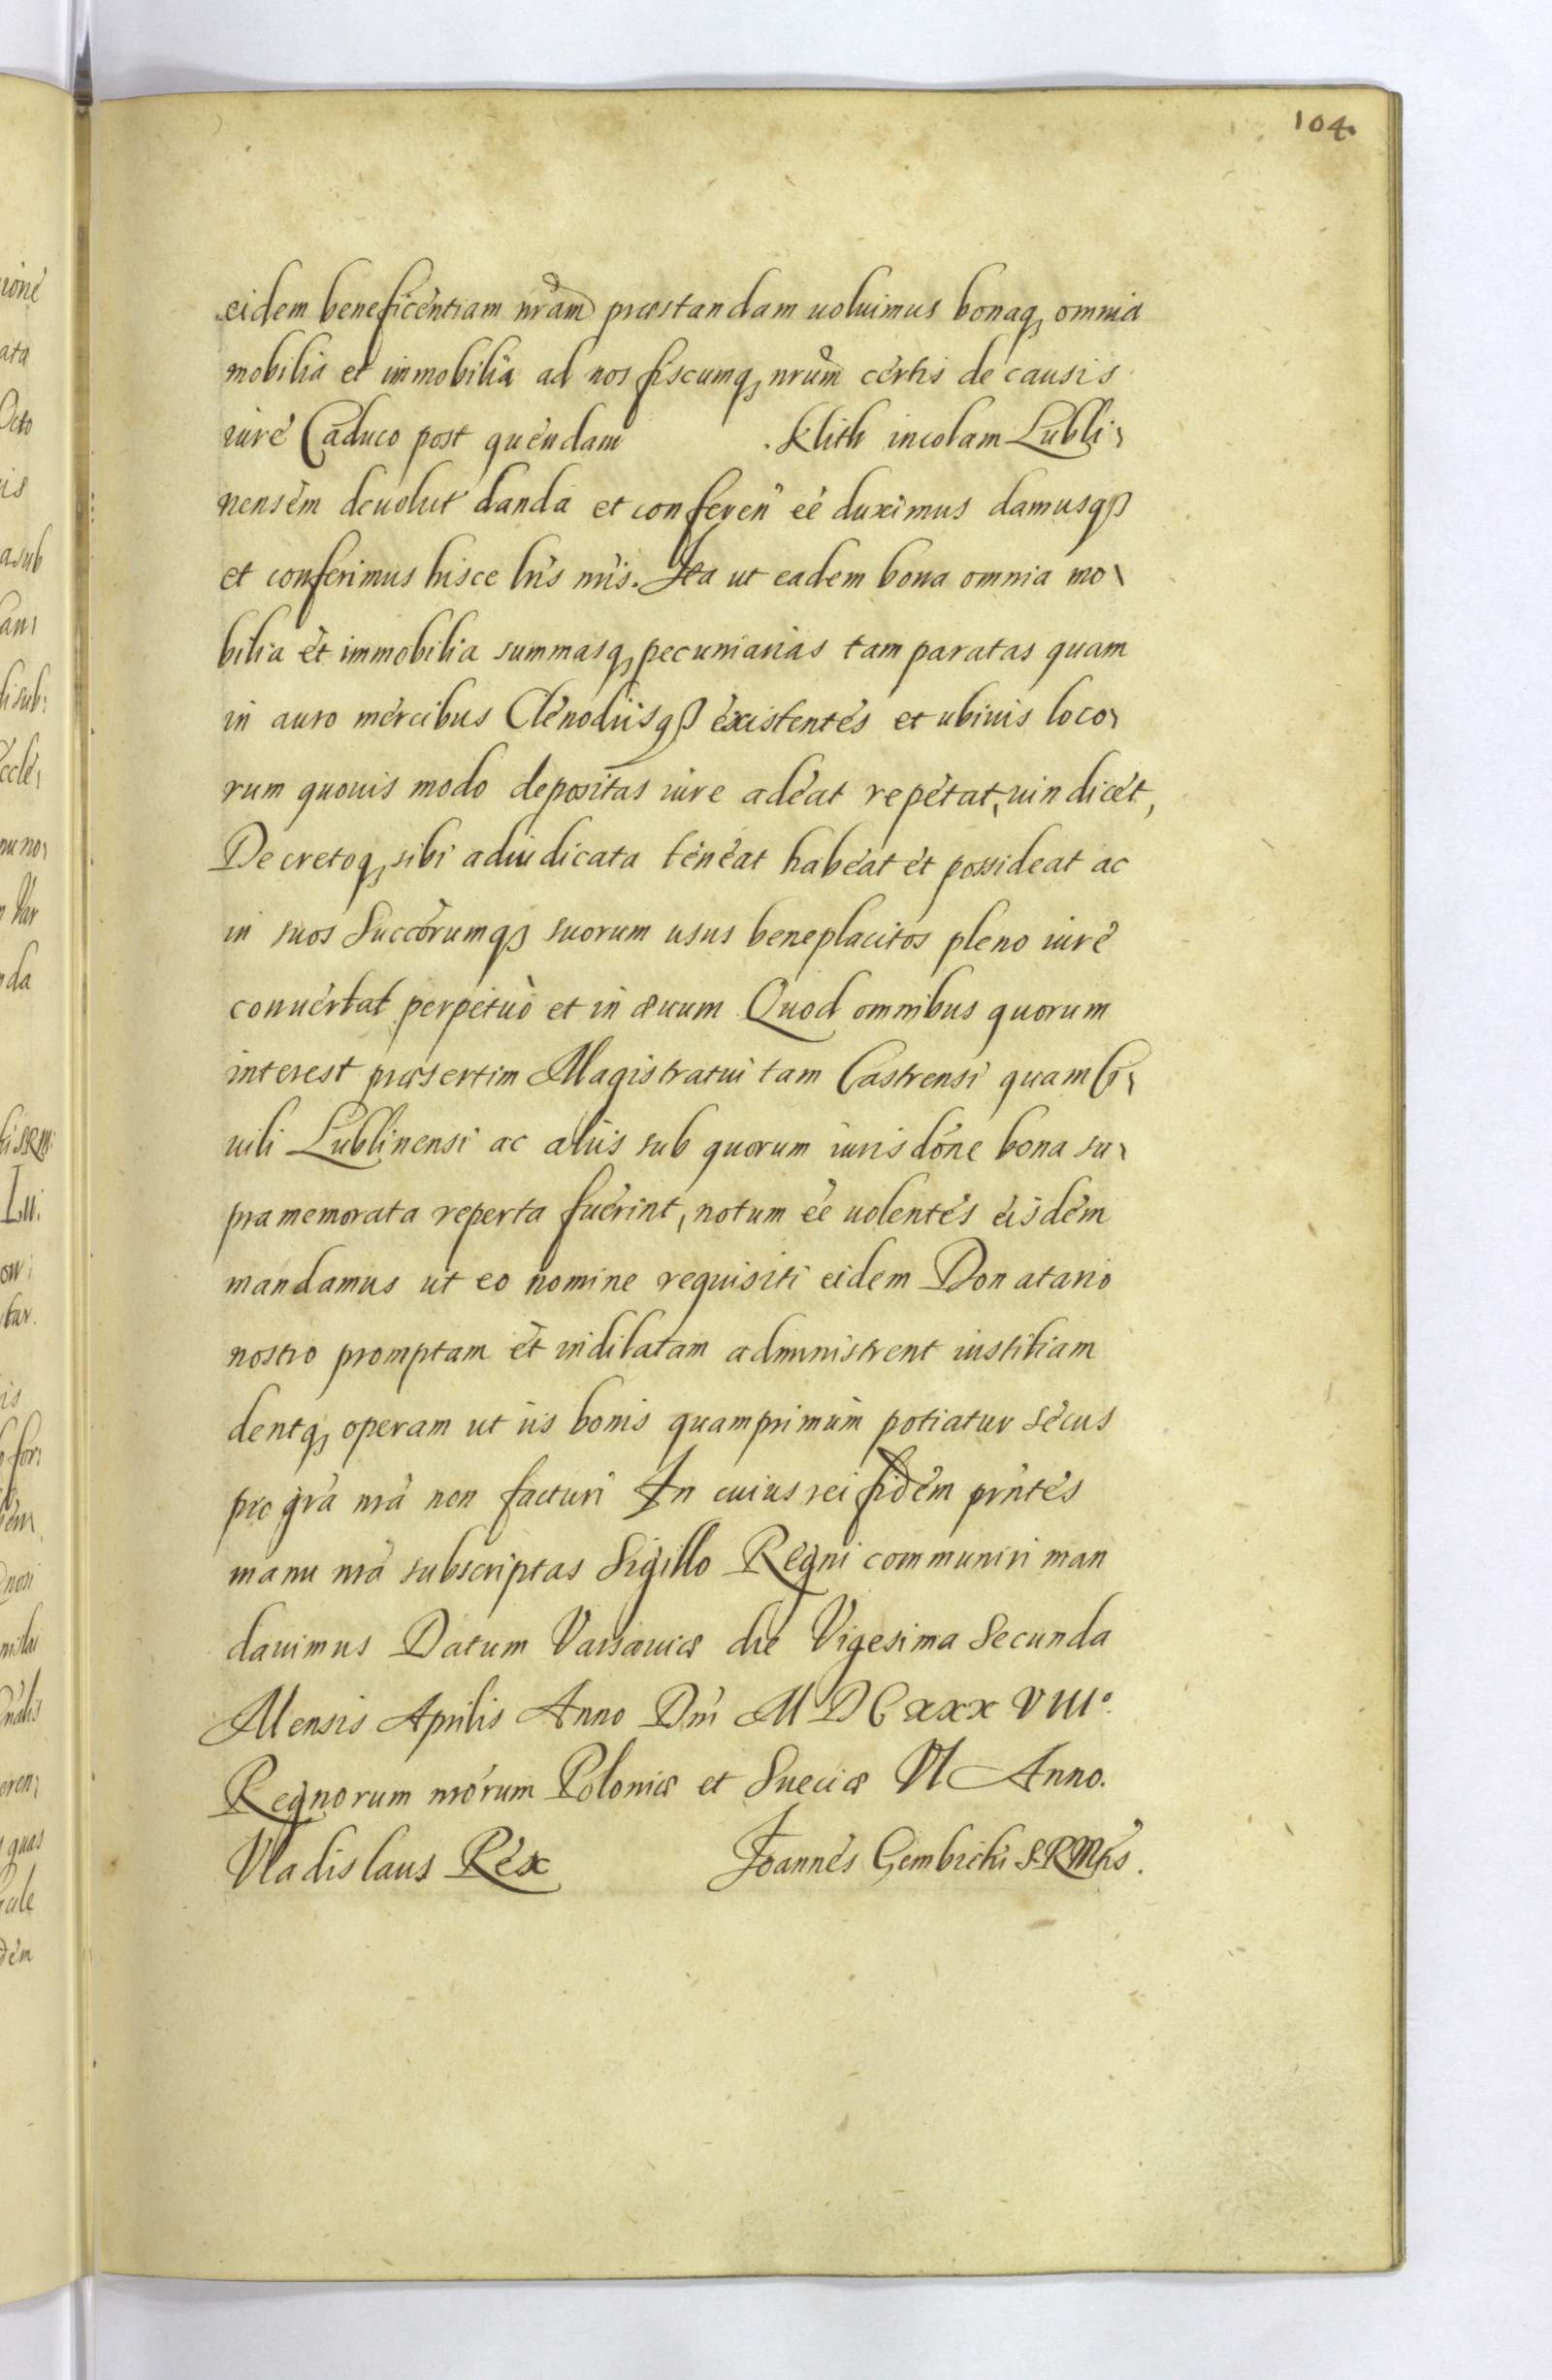 104.
eidem beneficentiam nram præstandam uoluimus bonaq, omnia
mobilia et immobilia ad nos fiscumq, nrum certis de causis
iure Caduco post quendam . Klith incolam Lubli,
nensem deuolut danda et conferen ee duximus damusqß
et conferimus hisce lris nris. Ita ut eadem bona omnia mo\
bilia et immobilia summasq, pecuniarias tam paratas quam
in auro mercibus Clenodiisqß existentes et ubiuis loco,
rum quouis modo depositas iure adeat repetat, uindicet,
Decretoq, sibi adiudicata teneat habeat et possideat ac
in suos Succorumqß suorum usus beneplacitos pleno iure
conuertat perpetuò et in æuum Quod omnibus quorum
interest præsertim Magistratui tam Castrensi quam Ci,
uili Lublinensi ac aliis sub quorum iurisdone bona su,
pramemorata reperta fuerint, notum ee uolentes eisdem
mandamus ut eo nomine requisiti eidem Donatario
nostro promptam et indilatam administrent iustitiam
dentq, operam ut iis bonis quamprimum potiatur secus
pro gra nra non facturi In cuius rei fidem prntes
manu nra subscriptas Sigillo Regni communiri man
dauimus Datum Varsauiæ die Vigesima Secunda
Mensis Aprilis Anno Dni MDCxxxVIII°.
Regnorum nrorum Poloniæ et Sueciæ VI Anno.
Vladislaus Rex Joannes Gembicki S.R.Mtis.